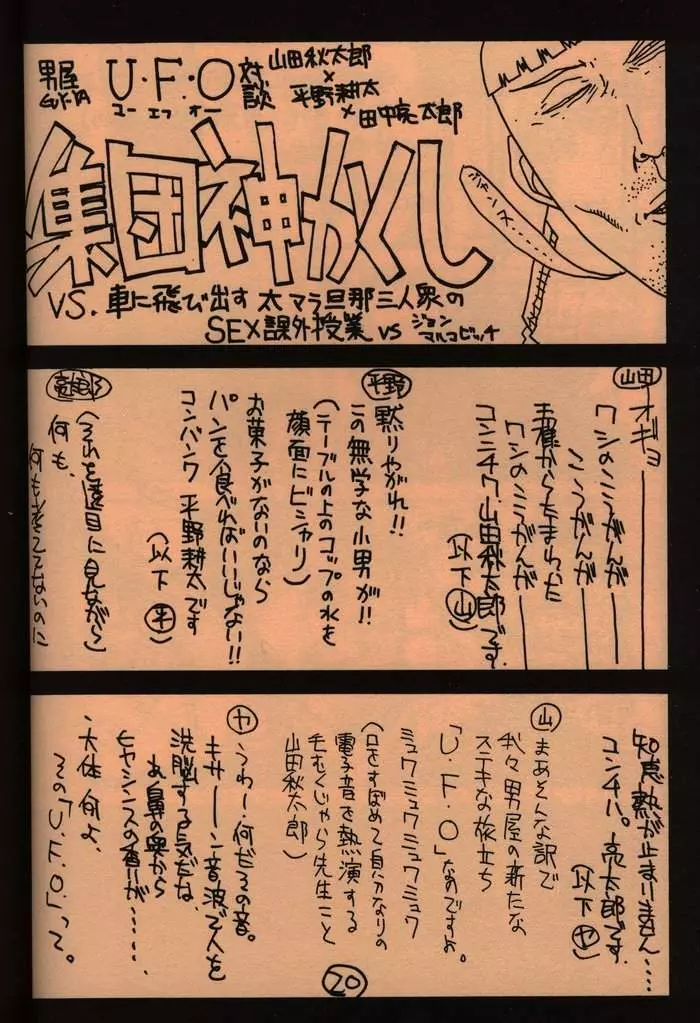 男屋
GUY-YA
U・F・O
ユー エフ オー
対談
山田秋太郎
×
平野耕太
×田中亮太郎
集団神かくし
VS. 車に飛び出す 太マラ旦那三人衆の
SEX課外授業 VS ジョン
マルコビッチ
山田
オギョ――
ワシのこうがんが――
こうがんが――
王様からたまわった
ワシのこうがんが――
コンニチワ、山田秋太郎です。
(以下 山)
平野
黙りやがれ!!
この無学な小男が!!
(テーブルの上のコップの水を
顔面にビシャリ)
お菓子がないのなら
パンを食べればいいじゃない!!
コンバンワ 平野耕太です
(以下 平)
亮太郎
(それを遠目に見ながら)
何も、
何も考えてないのに
知恵熱が止まりません‥‥
コンチハ。亮太郎です
(以下 ヤ)
山
まあそんな訳で
我々男屋の新たな
ステキな旅立ち
「U・F・O」なのですよ。
ミュワミュワミュワミュワ
(口をすぼめて自分なりの
電子音を熱演する
毛むくじゃら先生こと
山田秋太郎)
ヤ
うわー、何だその音。
キサーン音波で人を
洗脳する気だな、
お、鼻の奥から
ヒヤシンスの香りが‥‥‥
、大体何よ、
その「U・F・O」って。
20